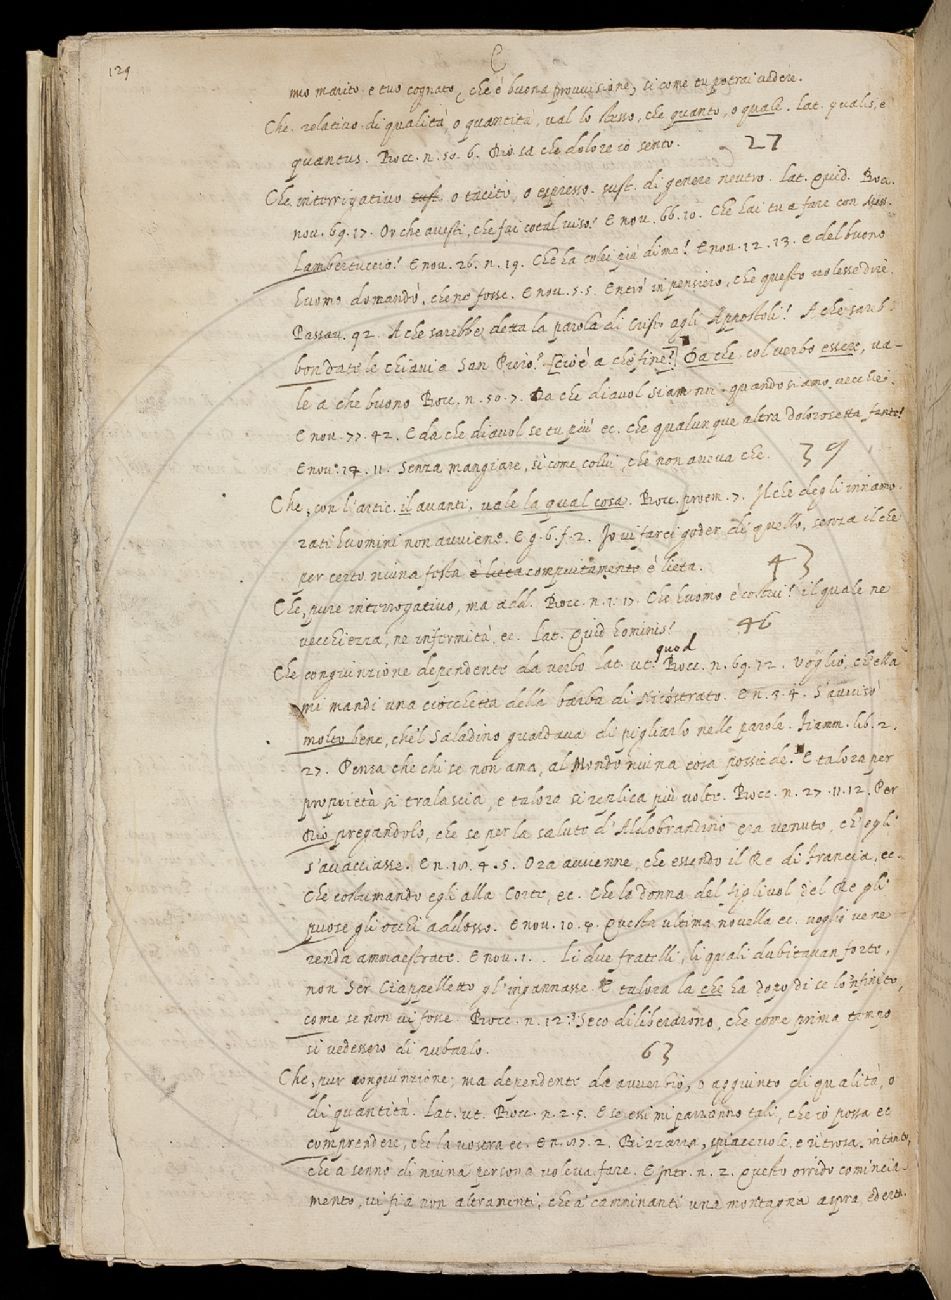 129
C
mio marito e tuo cognato, che è buona provvisione, si come tu potrai vedere.
Che relativo di qualità, o quantità, val lo stesso, che quanto, o quale. Lat. qualis, e
quantus. Bocc. n. 50. 6. Dio sa che dolore io sento. 27
Che interrigativo sust. o tacito, o espresso. sust. di genere neutro. Lat. Quid. Boc.
nov. 69. 17. Or che avesti, che fai cotal viso? E nov. 66. 10. Che hai tu a fare con Mess.
Lambertuccio? E nov. 26. n. 19. Che ha colei più di me? E nov. 12. 13. e del buono
huomo domandò, che ne fosse. E nov. 5. 5. Entrò in pensiero, che questo volesse dire.
Passav. 92. A che sarebbe detta la parola di Cristo agli Appostoli? A che sareb-
bon date le chiavi a San Piero? [cioè a che fine?] Da che col verbo essere, va-
le a che buono Bocc. n. 50. 7. Da che diavol siam noi. quando siamo vecchie?
E nov. 77. 42. E da che diavol se tu più ec. che qualunque altra dolorosetta fante?
E nov. 14. 11. Senza mangiare, sì come colui, che non aveva che. 39
Che, con l'artic. il avanti, vale la qual cosa. Bocc. proem. 7. Il che degli innamo-
rati huomini non avviene. E g. 6. f. 2. Io vi farei goder di quello, senza il che
per certo niuna festa è lieta compiutamente è lieta. 43
Che, pure interrogativo, ma add. Bocc. n. 1. 17. Che huomo è costui? il quale ne
vecchiezza, ne infermità, ec. Lat. Quid hominis? 46
Che congiunzione dependente da verbo Lat. ut. quod Bocc. n. 69. 12. Voglio, ch'ella
mi mandi una ciocchetta della barba di Nicostrato. E n. 3. 4. S'avvisò
molto bene, che'l Saladino guardava di pigliarlo nelle parole. Fiamm. lib. 2.
27. Pensa che chi se non ama, al Mondo niuna cosa possiede. E talora per
proprietà si tralascia, e talora si replica più volte. Bocc. n. 27. 11. 12. Per
Dio pregandolo, che se per la salute d'Aldobrandino era venuto, ch'egli
s'avacciasse. E n. 10. 4. 5. Ora avvenne, che essendo il Re di Francia, ec.
Che costumando egli alla Corte, ec. Che la donna del figliuol del Re gli
puose gli occhi addosso. E nov. 10. 9. Questa ultima novella ec. voglio ve ne
renda ammaestrate. E nov. 1. Li due fratelli, li quali dubitavan forte,
non Ser Ciappelletto gl'ingannasse. E talora la che ha dopo di se lo'nfinito,
come se non vi fosse. Bocc. n. 12. Seco diliberarono, che come prima tempo
si vedessero di rubarlo. 63
Che, pur congiunzione, ma dependente da avverbio, o aggiunto di qualità, o
di quantità. Lat. ut. Bocc. n. 2. 5. E se essi mi parranno tali, che io possa ec
comprendere, che la vostra ec. E n. 87. 2. Bizzarra, spiacevole, e ritrosa. intanto,
che a senno di niuna persona voleva fare. E pr. n. 2. Questo orrido comincia-
mento, vi fia non altramenti, che a' camminanti una montagna aspra, ed erta.